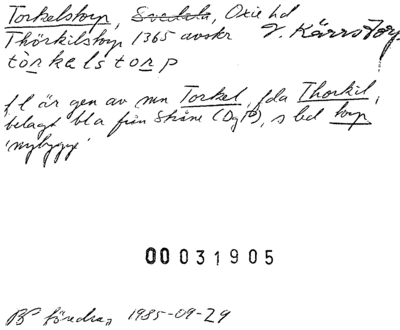 Torkelstorp, Svedala, Oxie hd V. Kärrstorp
Thörkilstorp 1365 avskr
torkalstorp
fl är gen av mn Torkel, fda Thorkil,
belagt bla från Skåne (DgP), s led torp
'nybygge'
00031905
BP föredrag 1985-09-29